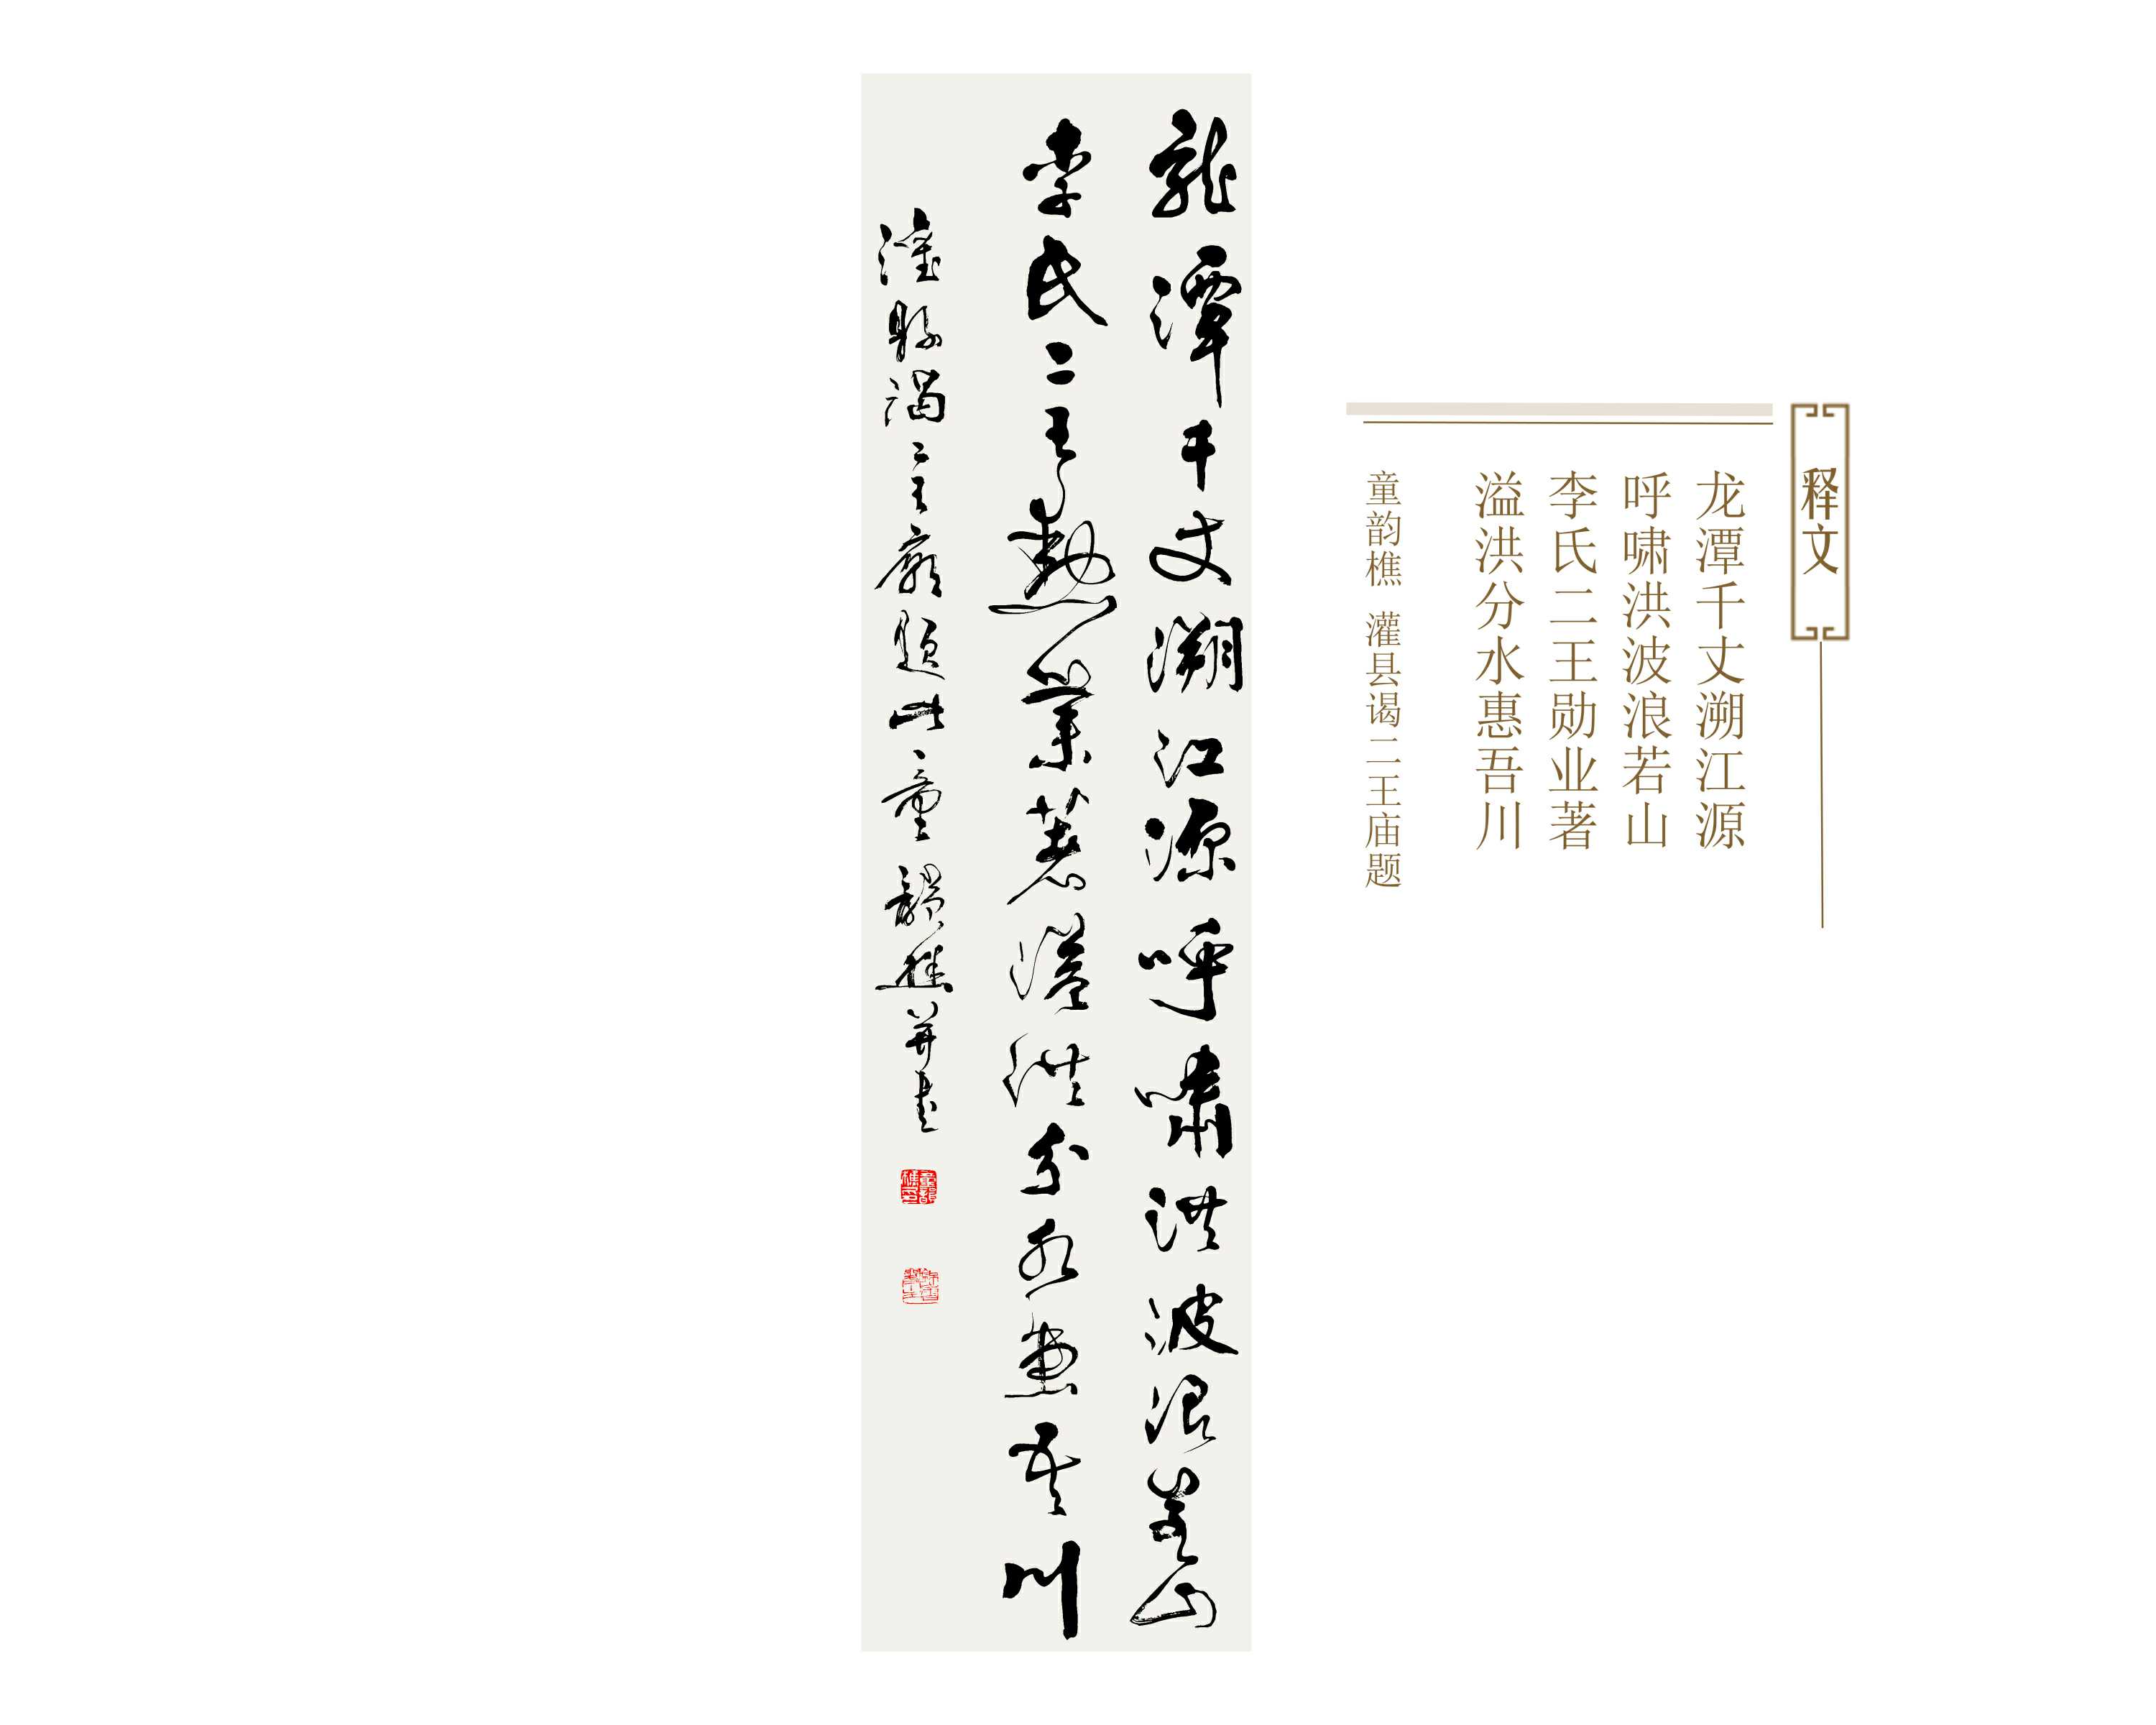 释文
龙潭千丈溯江源
呼啸洪波浪若山
李氏二王勋业著
溢洪分水惠吾川
童韵樵 灌县谒二王庙题
龍潭千丈溯江源呼嘯洪波浪若山
李氏二王勲業著溢洪分水惠吾川
灌縣謁二王廟題此童韻樵並書